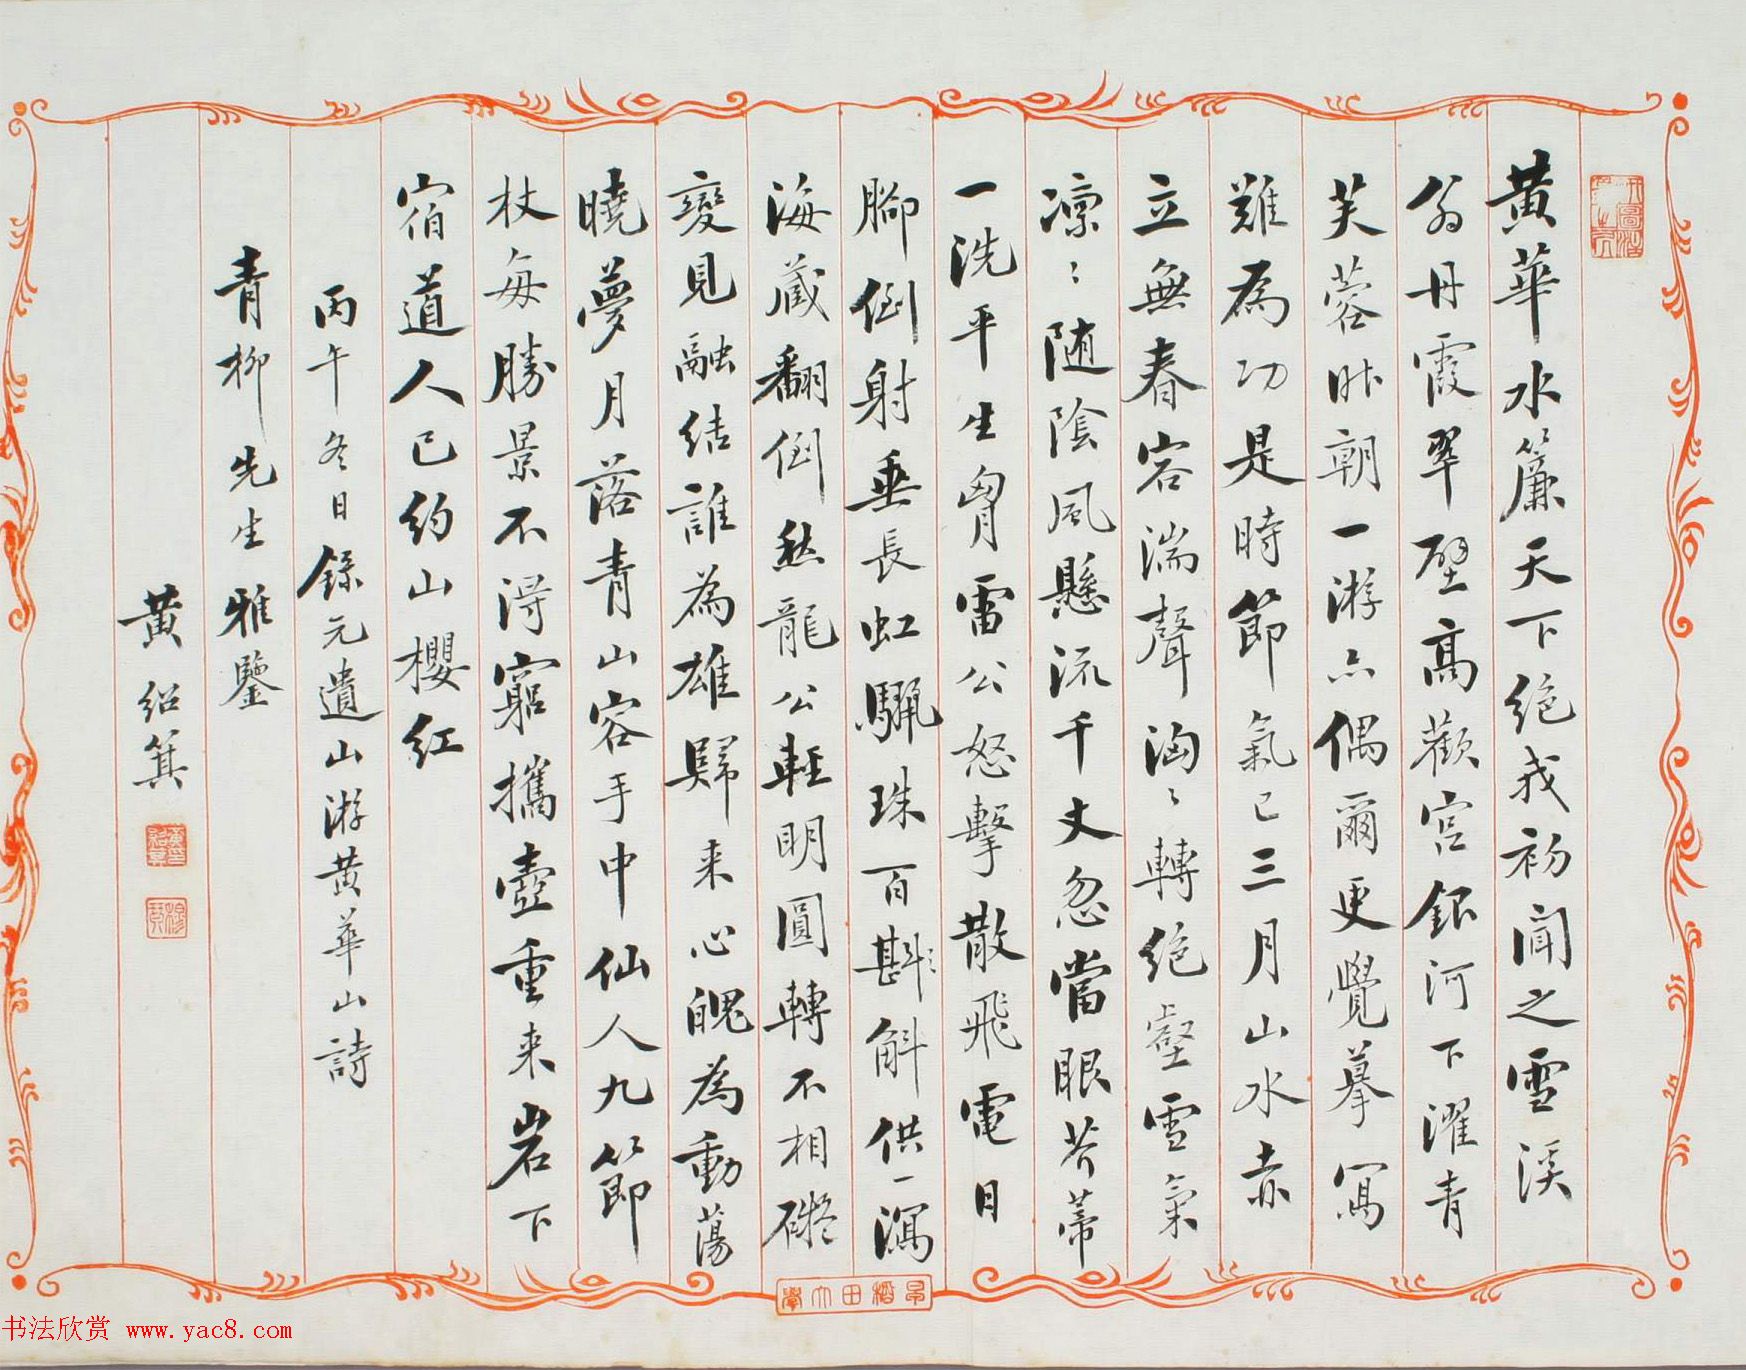 黄華水簾天下絶我初聞之雪溪
翁丹霞翠壁高歡宫銀河下濯青
芙蓉昨朝一游亦偶爾更覺摹寫
難為功是時節氣已三月山水赤
立無春容湍聲洶〻轉絶壑雪氣
凛〻随陰風懸流千丈忽當眼芥蒂
一洗平生胷雷公怒擊散飛電日
腳倒射垂長虹驪珠百斟斛供一瀉
海藏翻倒愁龍公軽明圓轉不相礙
變見融結誰為雄歸来心魄為動蕩
曉夢月落青山容手中仙人九節
杖每勝景不得窮攜壺重来岩下
宿道人已約山櫻紅
丙午冬日録元遺山游黄華山詩
青柳先生雅鑒
黄紹箕
早稻田大學
书法欣赏 www.yac8.com